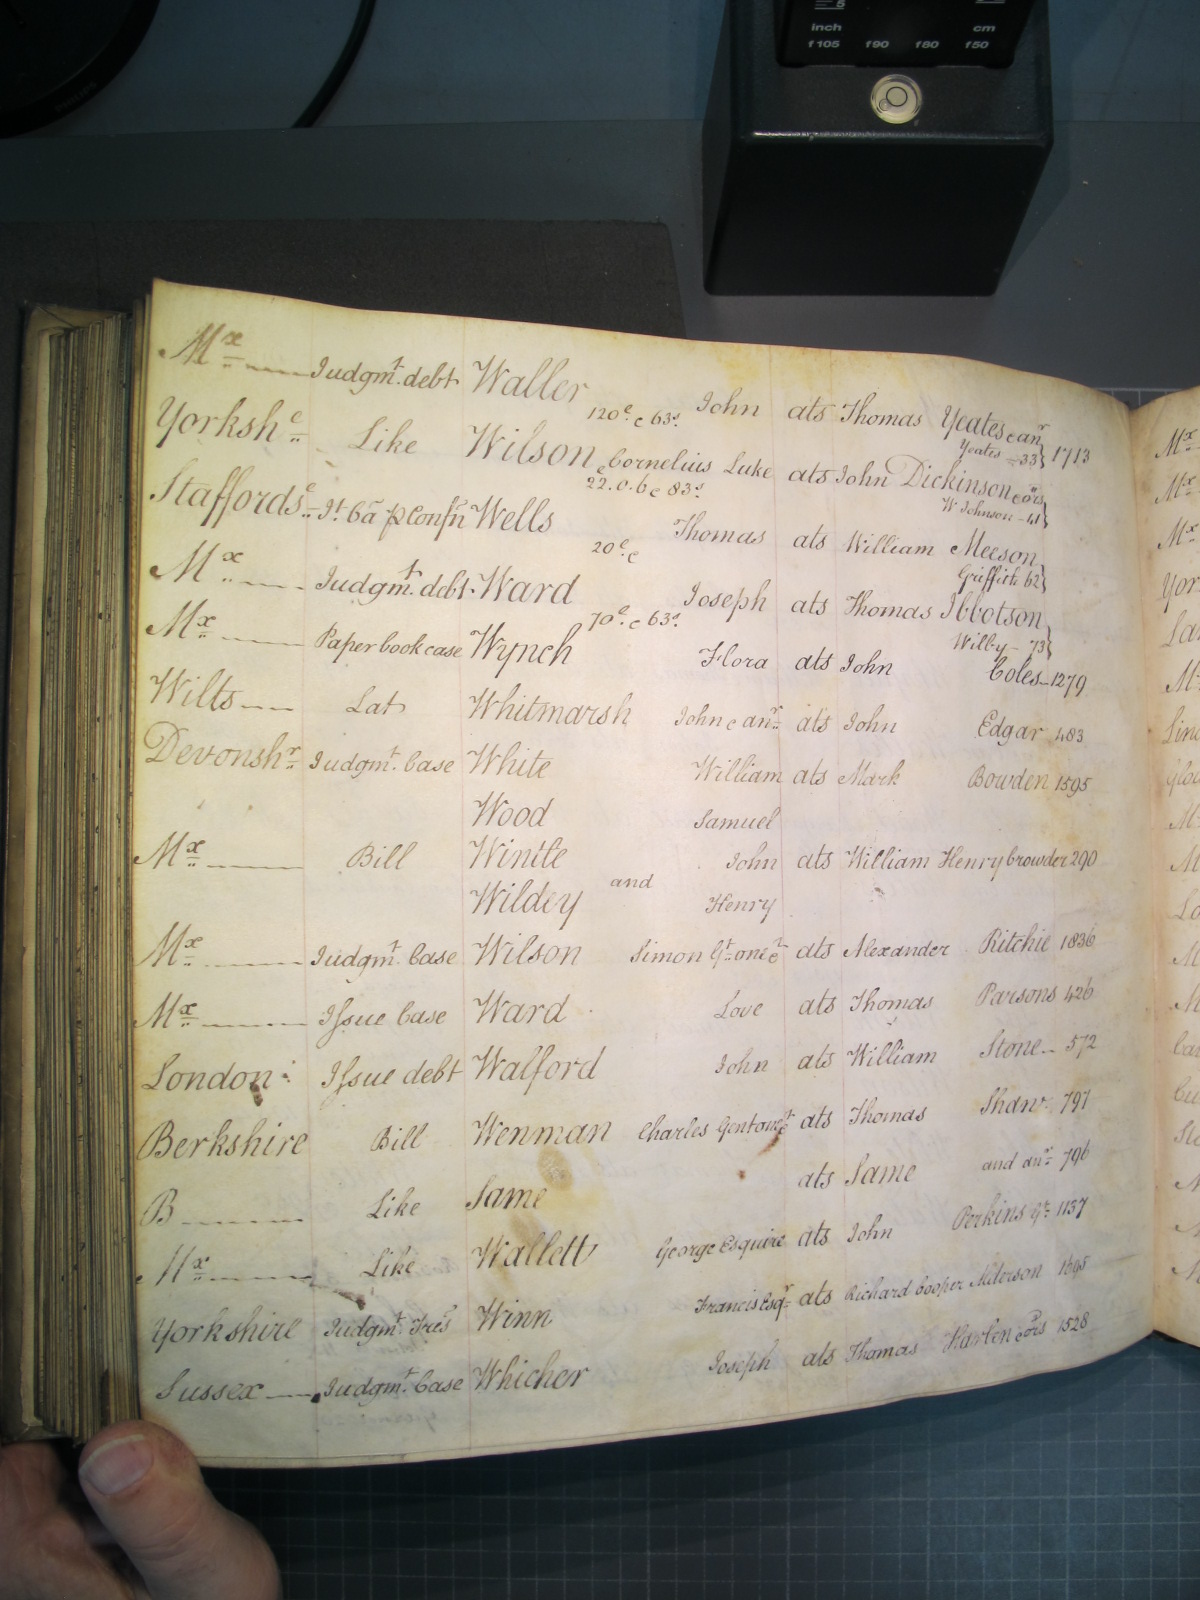 inch cm
f105 f90 f80 f50
PHILIPS
Mx Judgmt. debt Waller John ats Thomas Yeates & anr 1713
120£ & 63s. Yeates - 33
Yorkshe Like Wilson Cornelius Luke ats John Dickinson & ors
22.0.6 & 83s. W Johnson - 41
Staffordse It. Ca p Confn Wells Thomas ats William Meeson
20£ & Griffith 62
Mx Judgmt. debt. Ward Joseph ats Thomas Ibbotson
70£. & 63s. Wilby - 73
Mx Paper book case Wynch Flora ats John Coles 1279
Wilts Lat Whitmarsh John & anr ats John Edgar 483
Devonshr Judgmt. Case White William ats Mark Bowden 1595
Wood Samuel
Mx Bill Wintle John ats William Henry Crowder 290
Wildey and Henry
Mx Judgmt. Case Wilson Simon Gt. one &c ats Alexander Ritchie 1836
Mx Issue Case Ward Love ats Thomas Parsons 426
London Issue debt Walford John ats William Stone 572
Berkshire Bill Wenman Charles Gent one &c ats Thomas Shaw 791
B Like Same ats Same and anr 796
Mx Like Wallett George Esquire ats John Perkins Gt. 1137
Yorkshire Judgmt. Tres Winn Francis Esqr ats Richard Cooper Alderson 1695
Sussex Judgmt. Case Whicher Joseph ats Thomas Harlen & ors 1528
Mx
Mx
Mx
Yor
Lan
M
Linc
Glou
M
M
Lo
M
M